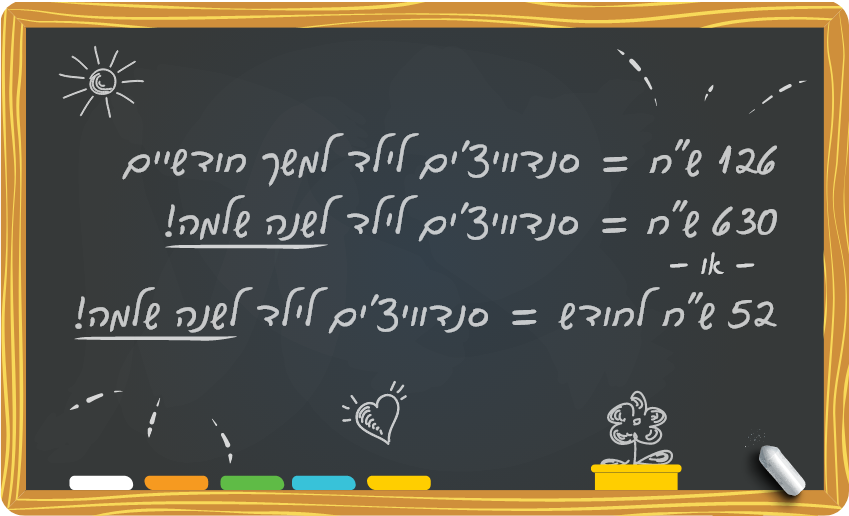 126 ש"ח = סנדוויצ'ים לילד למשך חודשיים
630 ש"ח = סנדוויצ'ים לילד לשנה שלמה!
– או –
52 ש"ח לחודש = סנדוויצ'ים לילד לשנה שלמה!